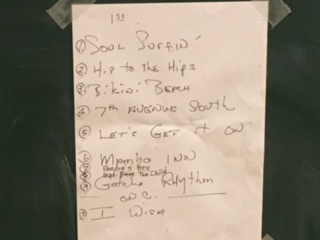 1st
① Soul Surfin'
② Hip to the Hips
③ Bikini Beach
④ 7th Avenue South
⑤ Let's Get it on
⑥ Mambo Inn
Pandora's Box
God Bless The Child
Gotcha Rhythm
on
I Wish